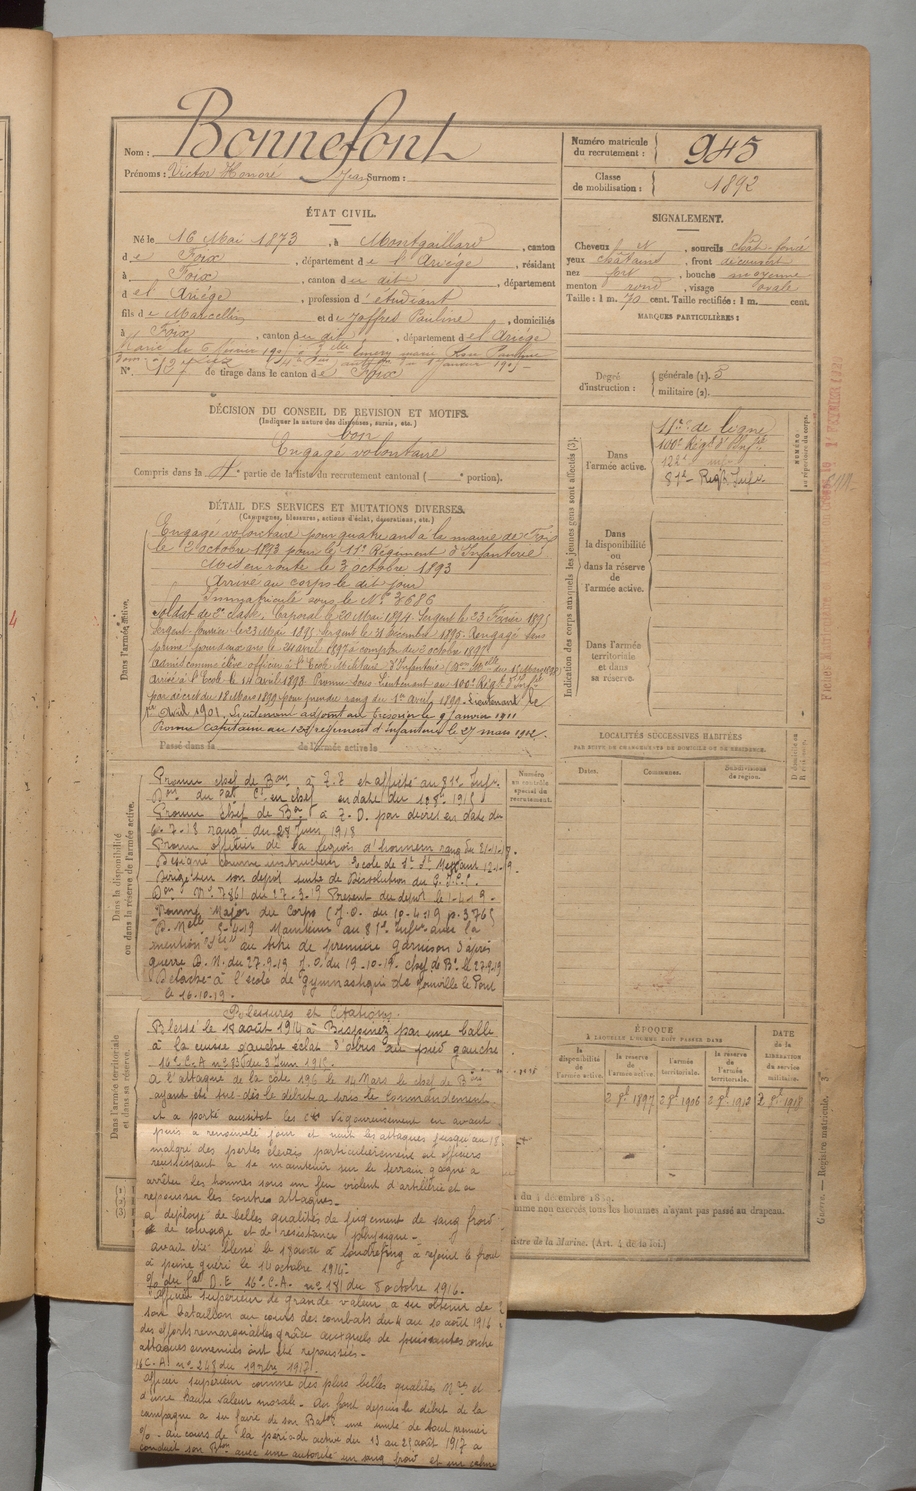 Nom : Bonnefont
Prénoms : Victor Honoré Jean Surnom :
Numéro matricule du recrutement : 945
Classe de mobilisation : 1892
ÉTAT CIVIL.
Né le 16 Mai 1873, à Montgailhard, canton
de Foix, département de l'Ariège, résidant
à Foix, canton du dit, département
de l'Ariège, profession d'étudiant
fils de Marcellin et de Joffres Pauline, domiciliés
à Foix, canton du dit, département de l'Ariège
N° 127 de tirage dans le canton de Foix
SIGNALEMENT.
Cheveux , sourcils chât. foncé
yeux châtains, front découvert
nez fort, bouche moyenne
menton rond, visage ovale
Taille : 1 m. 70 cent. Taille rectifiée : 1 m. cent.
MARQUES PARTICULIÈRES :
Degré d'instruction : générale (1). 3
militaire (2).
DÉCISION DU CONSEIL DE REVISION ET MOTIFS.
(Indiquer la nature des dispenses, sursis, etc.)
bon
Engagé volontaire
Compris dans la partie de la liste du recrutement cantonal ( portion).
DÉTAIL DES SERVICES ET MUTATIONS DIVERSES.
(Campagnes, blessures, actions d'éclat, décorations, etc.)
Dans l'armée active.
Engagé volontaire pour quatre ans à la mairie de Foix
le 2 octobre 1893 pour le 11e Régiment d'Infanterie
Mis en route le 3 octobre 1893
Arrivé au corps le dit jour
Immatriculé sous le N° 3686
Soldat de 2e classe, Caporal le 20 Mai 1894. Sergent le 23 Février 1895
Sergent fourrier le 23 Mai 1895 Sergent le 31 Décembre 1895. Rengagé sans
prime pour deux ans le 24 avril 1897 à compter du 2 octobre 1897
Admis comme élève officier à l'École Militaire d'Infanterie
Arrivé à l'École le 14 avril 1898. Promu Sous Lieutenant au 100e Régt d'Infie
par décret du 18 Mars 1899 pour prendre rang du 1er Avril 1899. Lieutenant le
1er Avril 1901. Lieutenant adjoint au trésorier le 9 janvier 1911
Promu capitaine au 122e régiment d'infanterie le 27 mars 1912.
Passé dans la de l'armée active le
Indication des corps auxquels les jeunes gens sont affectés (3).
Dans l'armée active.
11e de ligne
100e Régt d'Infie
122e inf
81e Regt Infie
NUMÉRO au répertoire du corps.
Dans la disponibilité ou dans la réserve de l'armée active.
Dans l'armée territoriale et dans sa réserve.
LOCALITÉS SUCCESSIVES HABITÉES
PAR SUITE DE CHANGEMENTS DE DOMICILE OU DE RÉSIDENCE.
Dates. Communes. Subdivisions de région.
Numéro au contrôle spécial du recrutement.
Dans la disponibilité ou dans la réserve de l'armée active.
Promu chef de Bon à T.T. et affecté au 81e Infie
Promu chef de Bon à T.D. par décret en date du
6-7-18 rang du 28 Juin 1918
Promu officier de la Légion d'honneur
Dirigé sur son dépôt suite de dissolution du
Don N° 7861 du 27-3-19 Présent au dépôt le 1-4-19
Nommé Major du Corps (J.O. du 10-4-19 p. 376
mention au titre de première garnison d'après
guerre D.M. du 27-9-19 J.O. du 19-10-19. chef de Bon le 27-9-19
Détaché à l'école de gymnastique de Joinville le Pont
le 16-10-19.
Dans l'armée territoriale et dans sa réserve.
Blessures et Citations.
Blessé le 18 août 1914 à Bisping par une balle
à la cuisse gauche éclat d'obus au pied gauche
16e C.A n° du 3 Juin 1915
à l'attaque de la côte 196 le 14 Mars le chef de Bon
ayant été tué dès le début a pris le commandement
et a porté aussitôt les Cies vigoureusement en avant
puis a renouvelé jour et nuit les attaques jusqu'au 18
malgré des pertes élevées particulièrement en officiers
réussissant à se maintenir sur le terrain gagné a
arrêter les hommes sous un feu violent d'artillerie et a
repousser les contres attaques
a déployé de belles qualités de jugement de sang froid
de courage et de résistance physique
avait été blessé le 18 août à Loudrefing a rejoint le front
à peine guéri le 14 octobre 1914
16e C.A. n° 181 du 8 octobre 1916.
officier supérieur de grande valeur a su obtenir de
son bataillon au cours des combats du 4 au 10 août 1916
des efforts remarquables grâce auxquels de puissantes contre
attaques ennemies ont été repoussées
16 C.A. n° 248 du 19 1917
officier supérieur comme des plus belles qualités et
d'une haute valeur morale. Au front depuis le début de la
campagne a su faire de son Baton une unité de tout premier
au cours de la période active du 13 au 21 août 1917 a
conduit son Bon avec une autorité un sang froid et un calme
ÉPOQUE
À LAQUELLE L'HOMME DOIT PASSER DANS
la disponibilité de l'armée active. la réserve de l'armée active. l'armée territoriale. la réserve de l'armée territoriale.
DATE de la LIBÉRATION du service militaire.
2 8e 1897 2 8e 1906 2 8e 1912 2 8e 1918
du 4 décembre 1889.
comme non exercés, tous les hommes n'ayant pas passé au drapeau.
ministre de la Marine. (Art. 4 de la loi.)
Guerre. — Registre matricule,